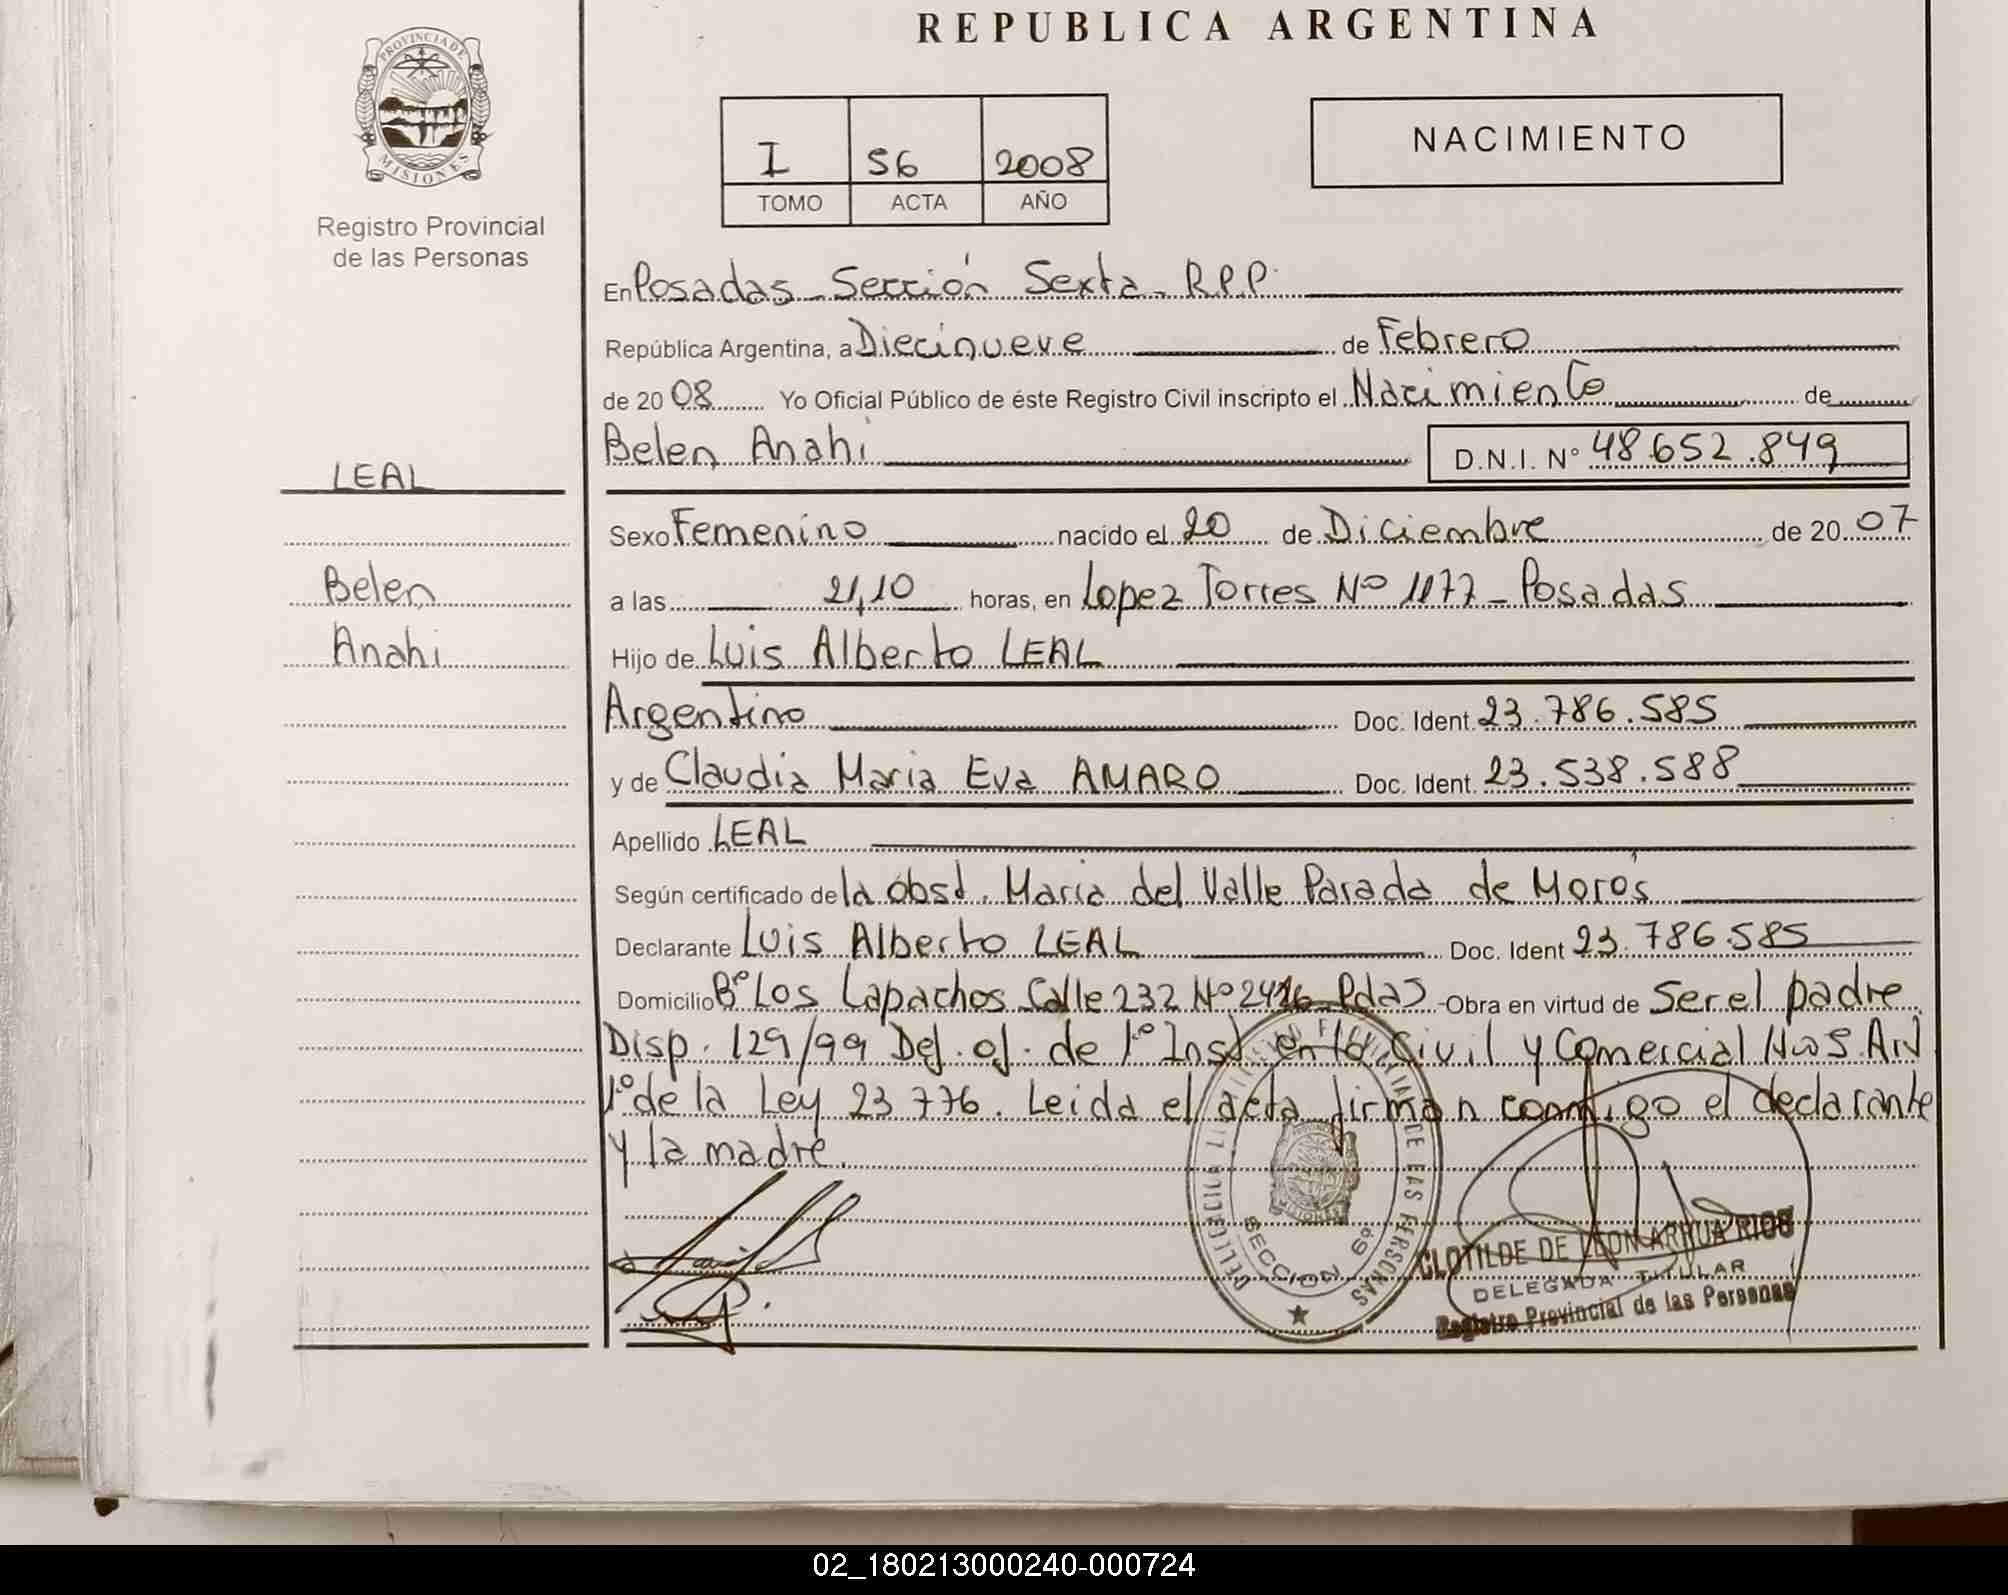 REPUBLICA ARGENTINA
PROVINCIA DE
MISIONES
Registro Provincial
de las Personas
I 56 2008
TOMO ACTA AÑO
NACIMIENTO
En Posadas Sección Sexta R.P.P.
República Argentina, a Diecinueve de Febrero
de 2008 Yo Oficial Público de éste Registro Civil inscripto el Nacimiento de
Belen Anahi D.N.I. Nº 48.652.849
LEAL
Sexo Femenino nacido el 20 de Diciembre de 2007
Belen
a las 21,10 horas, en Lopez Torres Nº 1177 - Posadas
Anahi
Hijo de Luis Alberto LEAL
Argentino Doc. Ident. 23.786.585
y de Claudia Maria Eva AMARO Doc. Ident. 23.538.588
Apellido LEAL
Según certificado de la obst. Maria del Valle Parada de Moros
Declarante Luis Alberto LEAL Doc. Ident 23.786.585
Domicilio Bº Los Lapachos Calle 232 Nº Pdas -Obra en virtud de Ser el padre
Disp. 129/99 Def. of. de 1º Inst en lo Civil y Comercial Art
1º de la Ley 23776. Leida el acta firman conmigo el declarante
y la madre.
DE LAS PERSONAS
SECCION 6º
CLOTILDE DE LEON ARHUA RIOS
DELEGADA TITULAR
Registro Provincial de las Personas
02_180213000240-000724